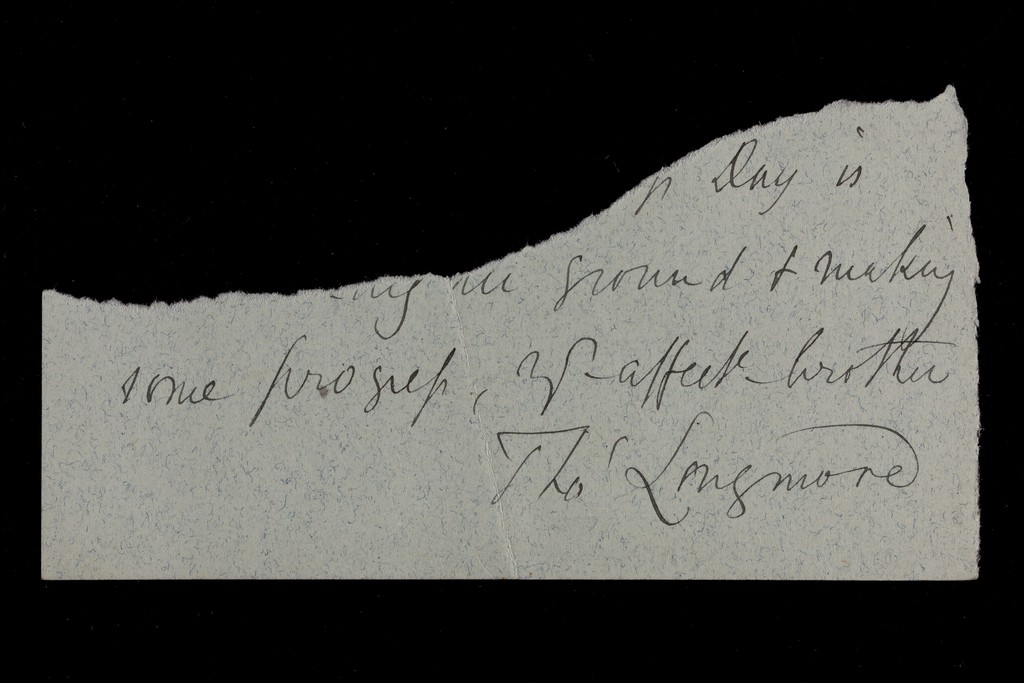 Day is
ground & making
some progress, Yr affect brother
Tho' Longmore